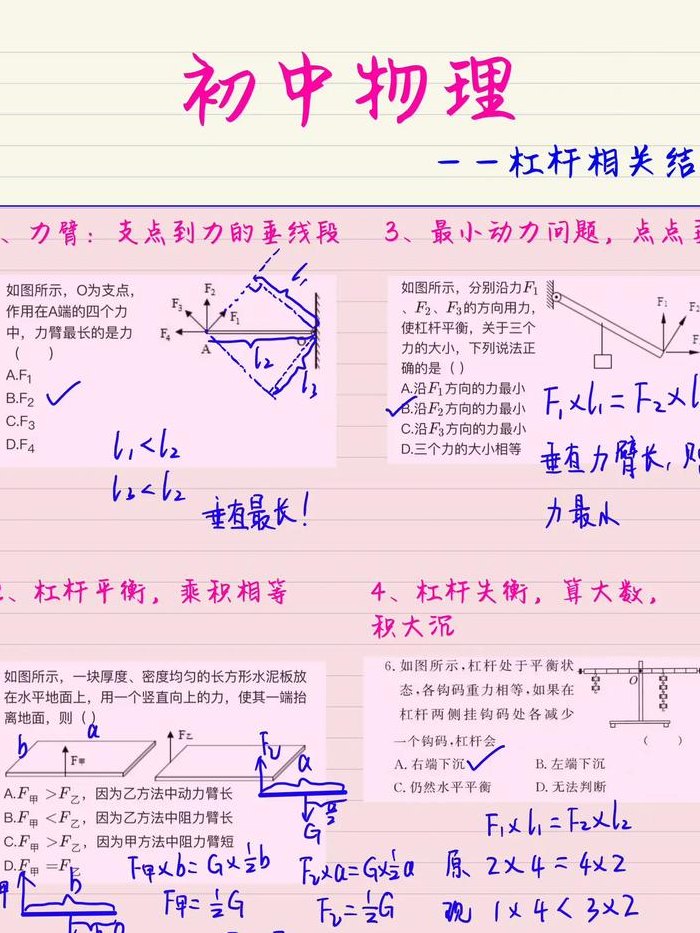 初中物理
——杠杆相关结
、力臂：支点到力的垂线段
如图所示，O为支点，
作用在A端的四个力
中，力臂最长的是力
（ ）
A.F₁
B.F₂
C.F₃
D.F₄
F₂
F₃
F₁
F₄
A
O
l₁
l₂
l₃
l₁<l₂
l₃<l₂
垂直最长！
3、最小动力问题，点点
如图所示，分别沿力F₁
、F₂、F₃的方向用力，
使杠杆平衡，关于三个
力的大小，下列说法正
确的是（）
A.沿F₁方向的力最小
B.沿F₂方向的力最小
C.沿F₃方向的力最小
D.三个力的大小相等
F₁
F₂
F
F₁×l₁=F₂×l
垂直力臂长，则
力最小
、杠杆平衡，乘积相等
如图所示，一块厚度、密度均匀的长方形水泥板放
在水平地面上，用一个竖直向上的力，使其一端抬
离地面，则（）
a
b
F甲
F乙
A.F甲 >F乙，因为乙方法中动力臂长
B.F甲 <F乙，因为乙方法中阻力臂长
C.F甲 >F乙，因为甲方法中阻力臂短
D.F甲 =F乙
F乙
a
a/2
G
甲
b
F甲×b=G×½b
F甲=½G
F乙×a=G×½a
F乙=½G
4、杠杆失衡，算大数，
积大沉
6.如图所示,杠杆处于平衡状
态,各钩码重力相等,如果在
杠杆两侧挂钩码处各减少
一个钩码,杠杆会
（ ）
O
A.右端下沉
B.左端下沉
C.仍然水平平衡
D.无法判断
F₁×l₁=F₂×l₂
原 2×4=4×2
现 1×4<3×2